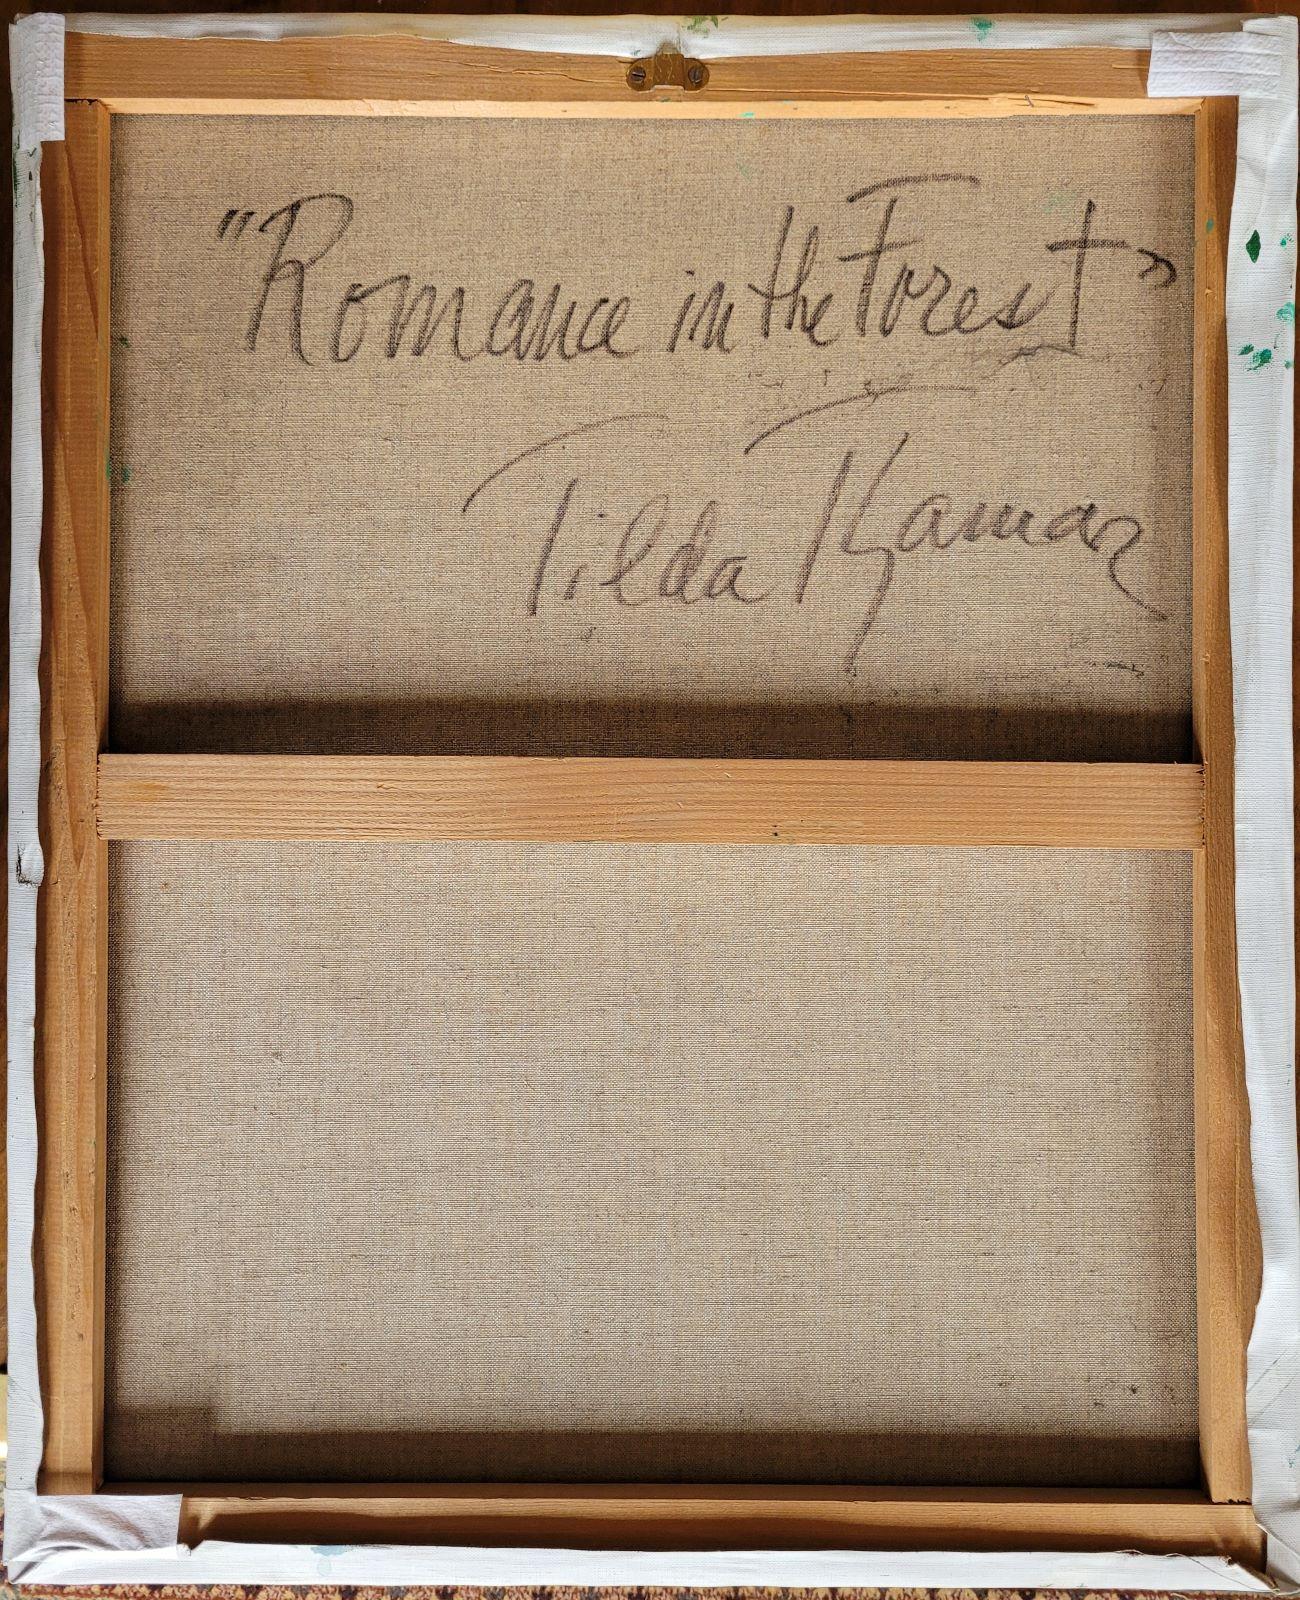 "Romance in the Forest"
Tilda Kamar